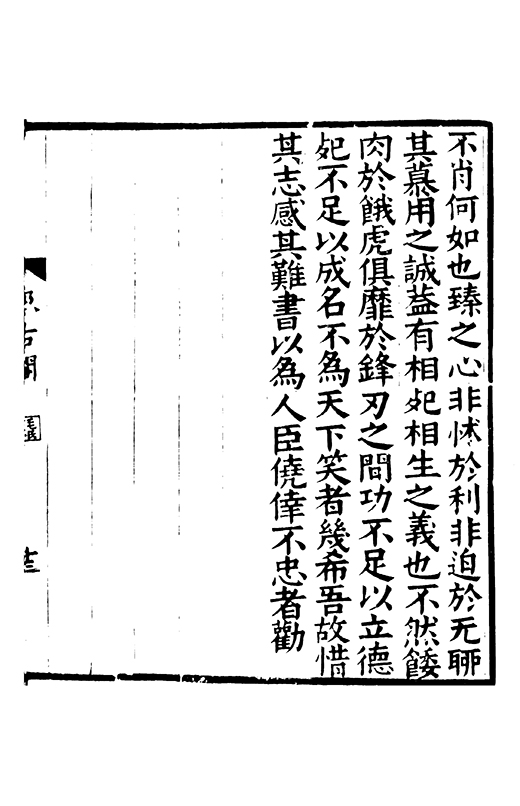 不肖何如也臻之心非怵於利非迫於无聊
其慕用之誠葢有相𣦸相生之義也不然餧
肉於餓虎俱靡於鋒刃之閒功不足以立德
𣦸不足以成名不為天下笑者幾希吾故惜
其志感其難書以為人臣僥倖不忠者勸